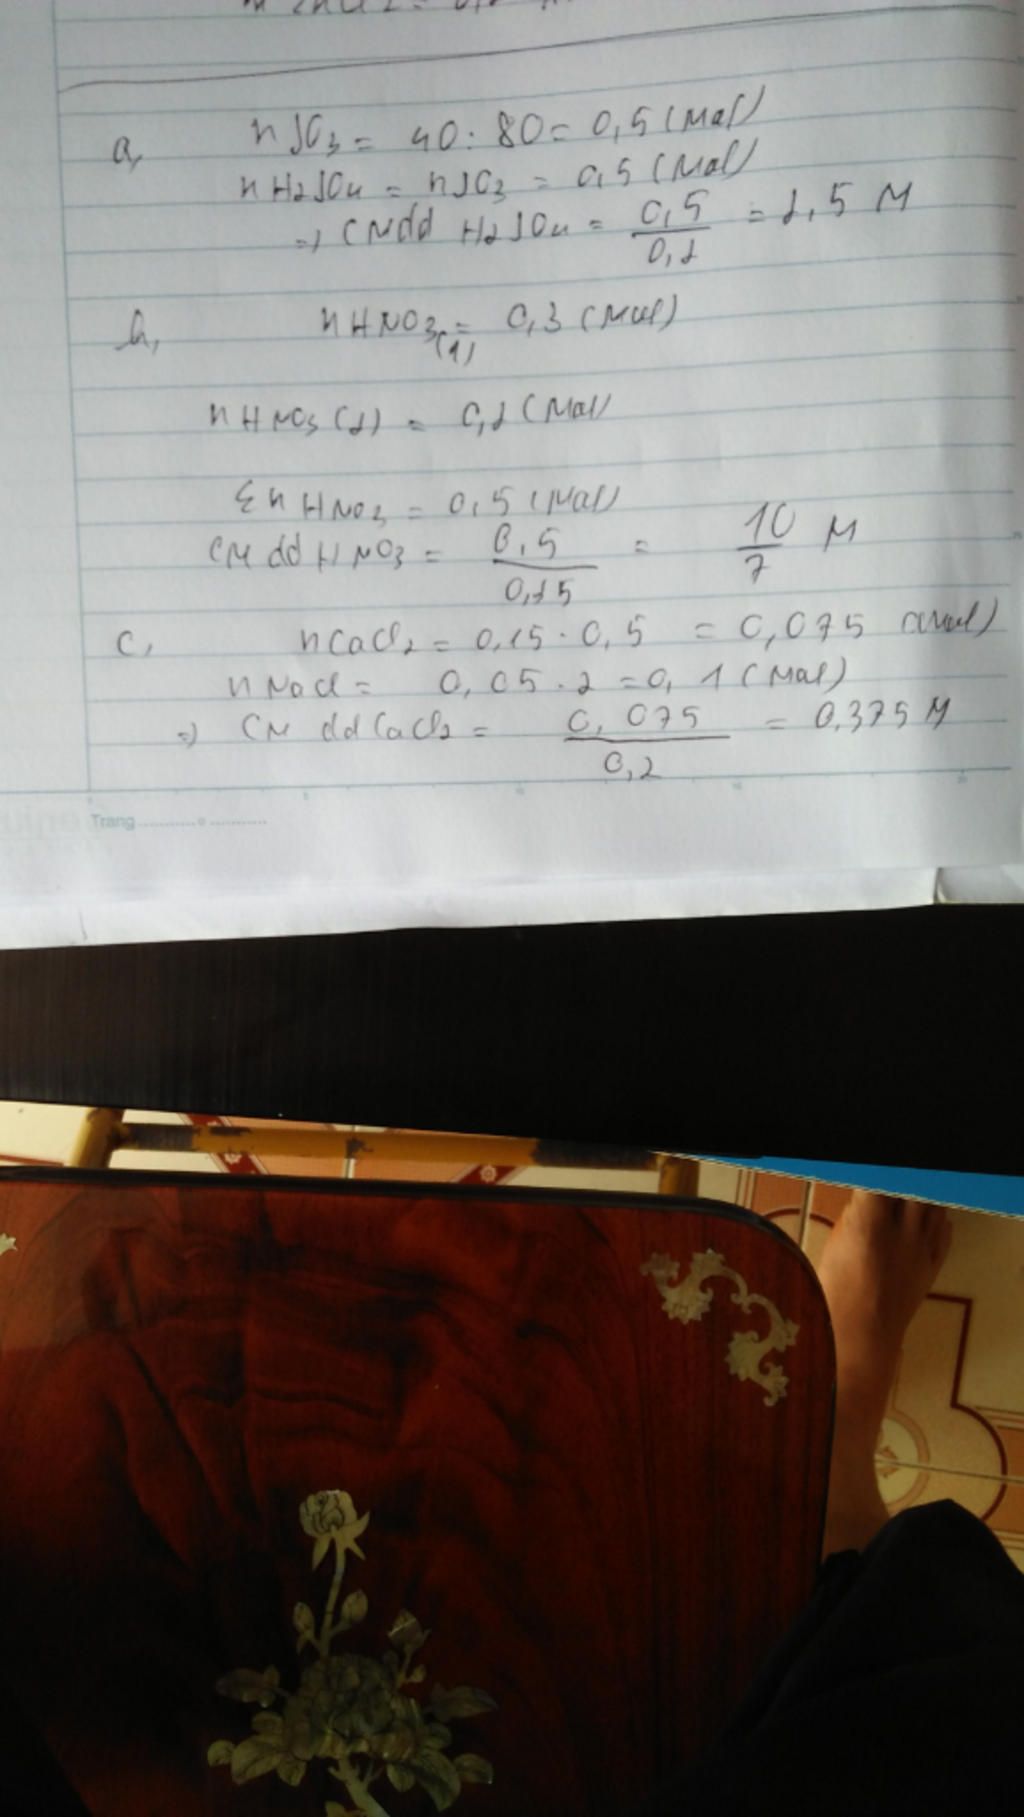 a, nSO3 = 40 : 80 = 0,5 (mol)
nH2SO4 = nSO3 = 0,5 (mol)
=> CMdd H2SO4 = 0,5 / 0,2 = 2,5 M
b, nHNO3(1) = 0,3 (mol)
nHNO3 (2) = 0,2 (mol)
Σn HNO3 = 0,5 (mol)
CM dd HNO3 = 0,5 / 0,35 = 10/7 M
c, nCaCl2 = 0,15 . 0,5 = 0,075 (mol)
nNaCl = 0,05 . 2 = 0,1 (mol)
=> CM dd CaCl2 = 0,075 / 0,2 = 0,375 M
Trang